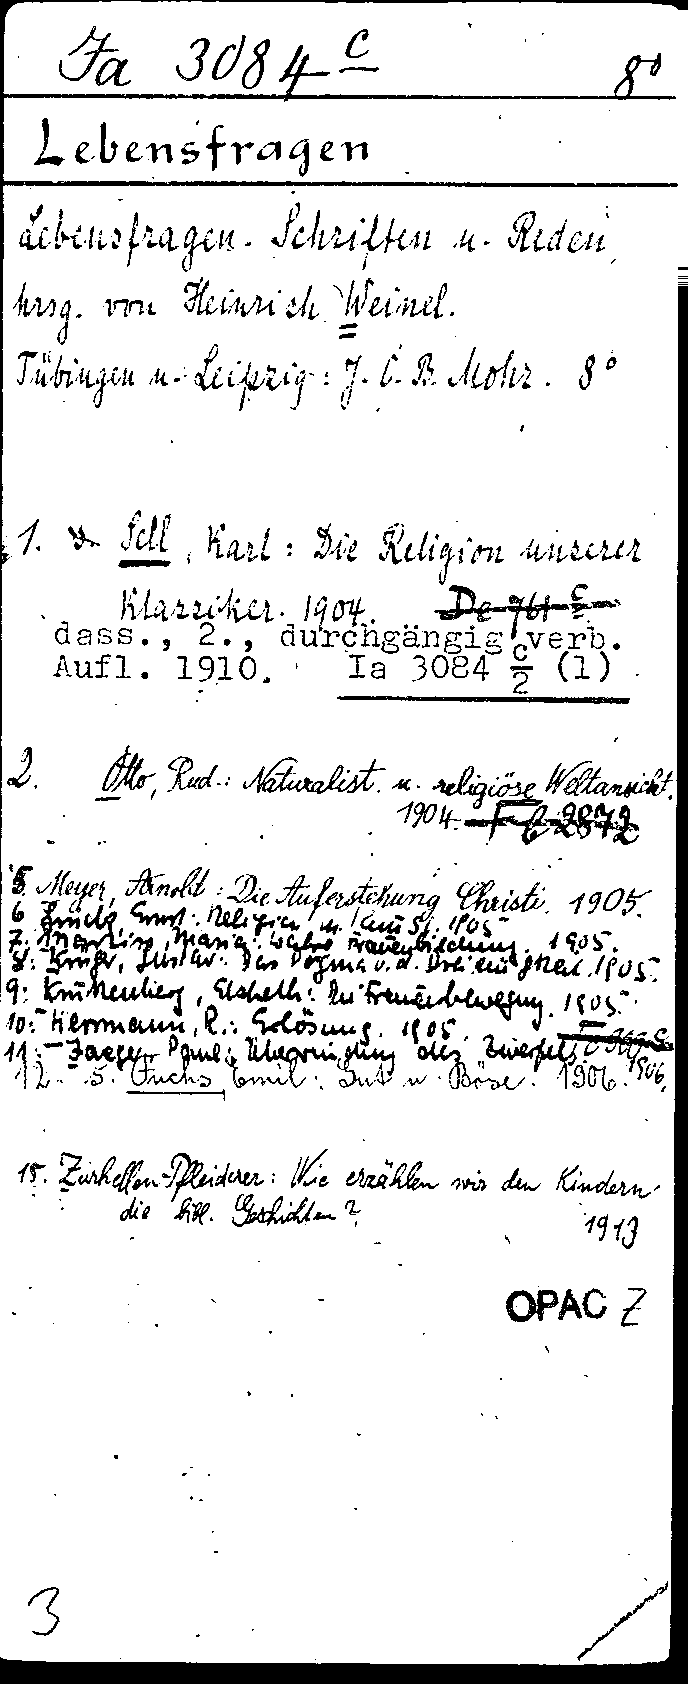 Ja 3084 c 8°
Lebensfragen
Lebensfragen. Schriften u. Reden,
hrsg. von Heinrich Weinel.
Tübingen u. Leipzig: J. C. B. Mohr. 8°
1. Sell, Karl: Die Religion unserer
Klassiker. 1904. De 761 c
dass., 2., durchgängig verb.
Aufl. 1910. Ia 3084 c/2 (1)
2. Otto, Rud.: Naturalist. u. religiöse Weltansicht.
1904. 2872
5. Meyer, Arnold: Die Auferstehung Christi. 1905.
6 Religion u. Kunst. 1905
7. Martin, Maria: Wahre Frauenbildung. 1905.
8. Krüger, Gustav: Das Dogma v. d. Dreieinigkeit. 1905.
9. Krukenberg, Elsbeth: Die Frauenbewegung. 1905.
10. Herrmann, R.: Erlösung. 1905.
11. Jaeger, Paul: Überwindung des Zweifels. 1906.
12. S. Fuchs, Emil: Gut u. Böse. 1906.
15. Zurhellen-Pfleiderer: Wie erzählen wir den Kindern
die bibl. Geschichten?
1913
OPAC Z
3